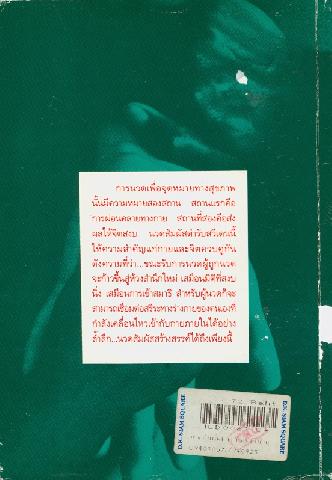 การนวดเพื่อจุดหมายทางสุขภาพ
นั้นมีความหมายสองสถาน สถานแรกคือ
การผ่อนคลายทางกาย สถานที่สองคือส่ง
ผลให้จิตสงบ นวดสัมผัสตำรับสวีเดนนี้
ให้ความสำคัญแก่กายและจิตควบคู่กัน
ดังความที่ว่า...ขณะรับการนวดผู้ถูกนวด
จะก้าวขึ้นสู่ห้วงสำนึกใหม่ เสมือนมิติที่สงบ
นิ่ง เสมือนการเข้าสมาธิ สำหรับผู้นวดก็จะ
สามารถเชื่อมต่อสรีระทางร่างกายของตนเองที่
กำลังเคลื่อนไหวเข้ากับกายภายในได้อย่าง
ล้ำลึก...นวดสัมผัสสร้างสรรค์ได้ถึงเพียงนี้
D.K. SIAM SQUARE
D.K. SIAM SQUARE